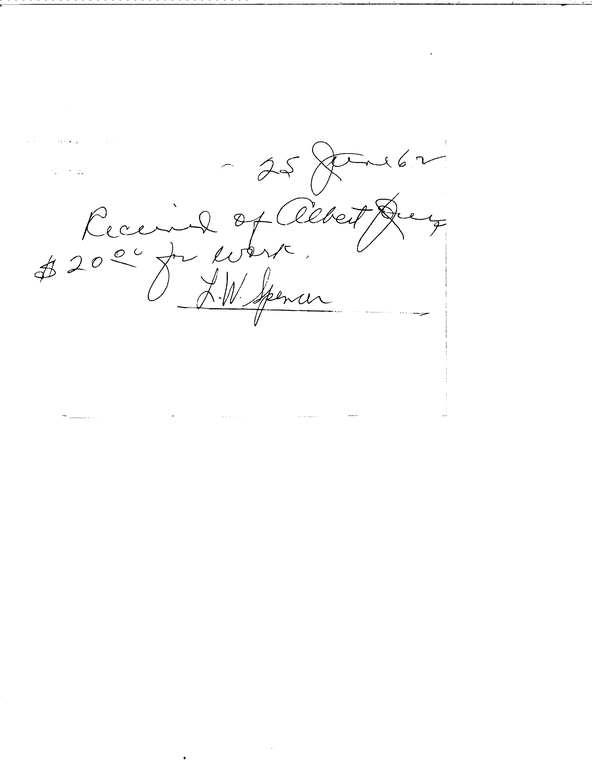 25 June 62
Received of Albert
$20.00 for work.
L.W. Spencer